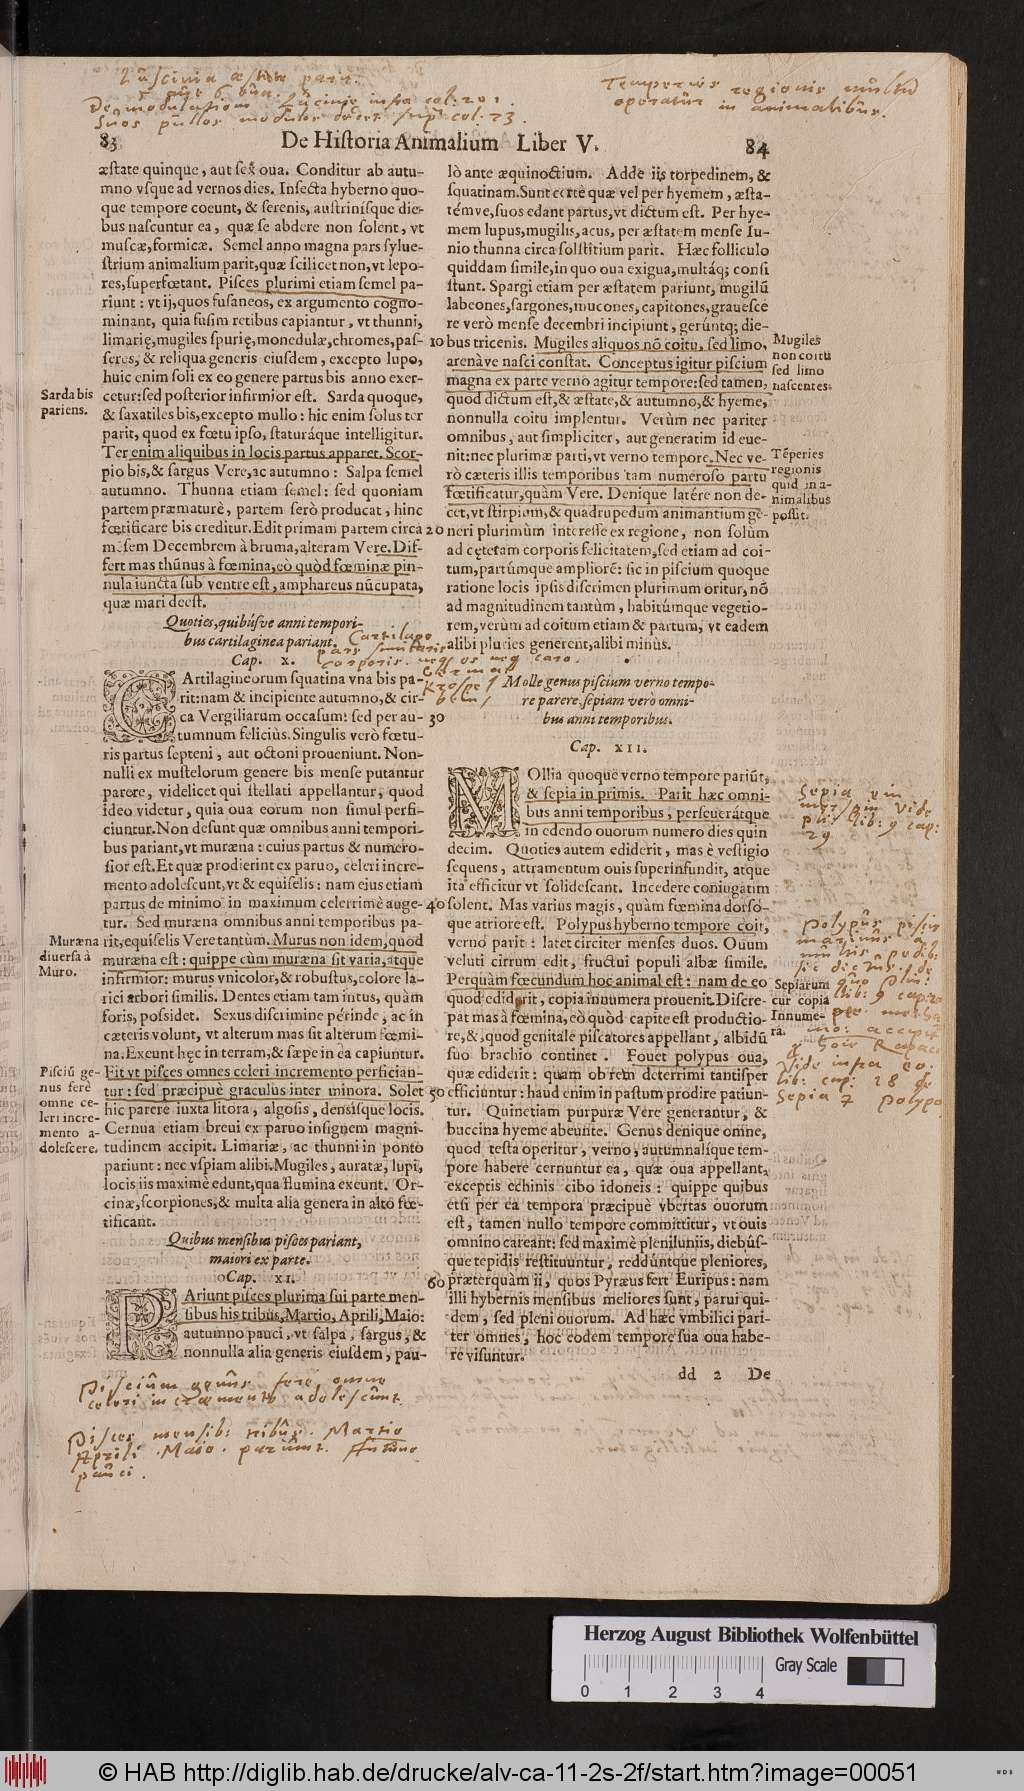 Luscinia æstate parit.
5 aut 6 oua.
De modulatione Lusciniæ infra col: 201.
Suos pullos modulos docet. sup. col. 73.
Temperies regionis multum
operatur in animalibus.
83 De Historia Animalium Liber V. 84
æstate quinque, aut sex oua. Conditur ab autu-
mno vsque ad vernos dies. Insecta hyberno quo-
que tempore coeunt, & serenis, austrinisque die-
bus nascuntur ea, quæ se abdere non solent, vt
muscæ, formicæ. Semel anno magna pars sylue-
strium animalium parit, quæ scilicet non, vt lepo-
res, superfœtant. Pisces plurimi etiam semel pa-
riunt: vt ij, quos fusaneos, ex argumento cogno-
minant, quia fusim retibus capiantur, vt thunni,
limarię, mugiles spurię, monedulæ, chromes, pas-
seres, & reliqua generis eiusdem, excepto lupo,
huic enim soli ex eo genere partus bis anno exer-
Sarda bis
pariens.
cetur: sed posterior infirmior est. Sarda quoque,
& saxatiles bis, excepto mullo: hic enim solus ter
parit, quod ex fœtu ipso, staturáque intelligitur.
Ter enim aliquibus in locis partus apparet. Scor-
pio bis, & sargus Vere, ac autumno: Salpa semel
autumno. Thunna etiam semel: sed quoniam
partem præmaturè, partem serò producat, hinc
fœtificare bis creditur. Edit primam partem circa
mẽsem Decembrem à bruma, alteram Vere. Dif-
fert mas thũnus à fœmina, eò quòd fœminæ pin-
nula iuncta sub ventre est, amphareus nũcupata,
quæ mari deest.
Quoties, quibúsve anni tempori-
bus cartilaginea pariant.
Cap. X.
Cartilago
pars similaris
corporis. neq. os neq caro.
CArtilagineorum squatina vna bis pa-
rit: nam & incipiente autumno, & cir-
ca Vergiliarum occasum: sed per au-
tumnum feliciùs. Singulis verò fœtu-
ris partus septeni, aut octoni proueniunt. Non-
nulli ex mustelorum genere bis mense putantur
parere, videlicet qui stellati appellantur, quod
ideo videtur, quia oua eorum non simul perfi-
ciuntur. Non desunt quæ omnibus anni tempori-
bus pariant, vt muræna: cuius partus & numero-
sior est. Et quæ prodierint ex paruo, celeri incre-
mento adolescunt, vt & equiselis: nam eius etiam
partus de minimo in maximum celerrimè auge-
tur. Sed muræna omnibus anni temporibus pa-
Muræna
diuersa à
Muro.
rit, equiselis Vere tantùm. Murus non idem, quod
muræna est: quippe cùm muræna sit varia, atque
infirmior: murus vnicolor, & robustus, colore la-
rici arbori similis. Dentes etiam tam intus, quàm
foris, possidet. Sexus discrimine périnde, ac in
cæteris volunt, vt alterum mas sit alterum fœmi-
na. Exeunt hęc in terram, & sæpe in ea capiuntur.
Pisciũ ge-
nus ferè
omne ce-
leri incre-
mento a-
dolescere.
Fit vt pisces omnes celeri incremento perfician-
tur: sed præcipuè graculus inter minora. Solet
hic parere iuxta litora, algosis, densisque locis.
Cernua etiam breui ex paruo insignem magni-
tudinem accipit. Limariæ, ac thunni in ponto
pariunt: nec vspiam alibi. Mugiles, auratæ, lupi,
locis iis maximè edunt, qua flumina exeunt. Or-
cinæ, scorpiones, & multa alia genera in alto fœ-
tificant.
Quibus mensibus pisces pariant,
maiori ex parte.
Cap. XI.
PAriunt pisces plurima sui parte men-
sibus his tribus, Martio, Aprili, Maio:
autumno pauci, vt salpa, sargus, &
nonnulla alia generis eiusdem, pau-
Piscium genus fere omne
celeri incremento adolescunt.
Pisces mensib: tribus. Martio
Aprili. Maio. pariunt. Autumno
pauci.
lò ante æquinoctium. Adde iis torpedinem, &
squatinam. Sunt certè quæ vel per hyemem, æsta-
témve, suos edant partus, vt dictum est. Per hye-
mem lupus, mugilis, acus, per æstatem mense Iu-
nio thunna circa solstitium parit. Hæc folliculo
quiddam simile, in quo oua exigua, multáq; consi
stunt. Spargi etiam per æstatem pariunt, mugilũ
labeones, sargones, mucones, capitones, grauesce
re verò mense decembri incipiunt, gerúntq; die-
10 bus tricenis. Mugiles aliquos nõ coitu, sed limo,
Mugiles
non coitu
sed limo
nascentes.
arenàve nasci constat. Conceptus igitur piscium
magna ex parte verno agitur tempore: sed tamen,
quod dictum est, & æstate, & autumno, & hyeme,
nonnulla coitu implentur. Verùm nec pariter
omnibus, aut simpliciter, aut generatim id eue-
nit: nec plurimæ parti, vt verno tempore. Nec ve-
Tẽperies
regionis
quid in a-
nimalibus
possit.
rò cæteris illis temporibus tam numeroso partu
fœtificatur, quàm Vere. Denique latére non de-
cet, vt stirpium, & quadrupedum animantium ge-
20 neri plurimùm interesse ex regione, non solùm
ad cęteram corporis felicitatem, sed etiam ad coi-
tum, partúmque ampliorẽ: sic in piscium quoque
ratione locis ipsis discrimen plurimum oritur, nõ
ad magnitudinem tantùm, habitúmque vegetio-
rem, verùm ad coitum etiam & partum, vt eadem
alibi pluries generent, alibi minùs.
Molle genus piscium verno tempo-
re parere, sepiam verò omni-
30 bus anni temporibus.
Cap. XII.
MOllia quoque verno tempore pariũt,
& sepia in primis. Parit hæc omni-
bus anni temporibus, perseuerátque
in edendo ouorum numero dies quin
decim. Quoties autem ediderit, mas è vestigio
sequens, attramentum ouis superinfundit, atque
ita efficitur vt solidescant. Incedere coniugatim
40 solent. Mas varius magis, quàm fœmina dorso-
que atriore est. Polypus hyberno tempore coit,
verno parit: latet circiter menses duos. Ouum
veluti cirrum edit, fructui populi albæ simile.
Perquàm fœcundum hoc animal est: nam de eo
Sepiarum
cur copia
Innume-
ra.
quod ediderit, copia innumera prouenit. Discre-
pat mas à fœmina, eò quòd capite est productio-
re, &, quod genitale piscatores appellant, albidũ
suo brachio continet. Fouet polypus oua,
quæ ediderit: quam ob rem deterrimi tantisper
50 efficiuntur: haud enim in pastum prodire patiun-
tur. Quinetiam purpuræ Vere generantur, &
buccina hyeme abeunte. Genus denique omne,
quod testa operitur, verno, autumnalique tem-
pore habere cernuntur ea, quæ oua appellant,
exceptis echinis cibo idoneis: quippe quibus
etsi per ea tempora præcipuè vbertas ouorum
est, tamen nullo tempore committitur, vt ouis
omnino careant: sed maximè pleniluniis, diebús-
que tepidis restituuntur, reddúntque pleniores,
60 præterquàm ii, quos Pyræus fert Euripus: nam
illi hybernis mensibus meliores sunt, parui qui-
dem, sed pleni ouorum. Ad hæc vmbilici pari-
ter omnes, hoc eodem tempore sua oua habe-
re visuntur.
dd 2 De
Polypus piscis
marinus a
multis pedib:
sic dictus. de
quo Plin:
lib: 9 cap:
Vide infra co.
lib: cap: 18 de
Sepia & polypo
Herzog August Bibliothek Wolfenbüttel
Gray Scale
0 1 2 3 4
© HAB http://diglib.hab.de/drucke/alv-ca-11-2s-2f/start.htm?image=00051